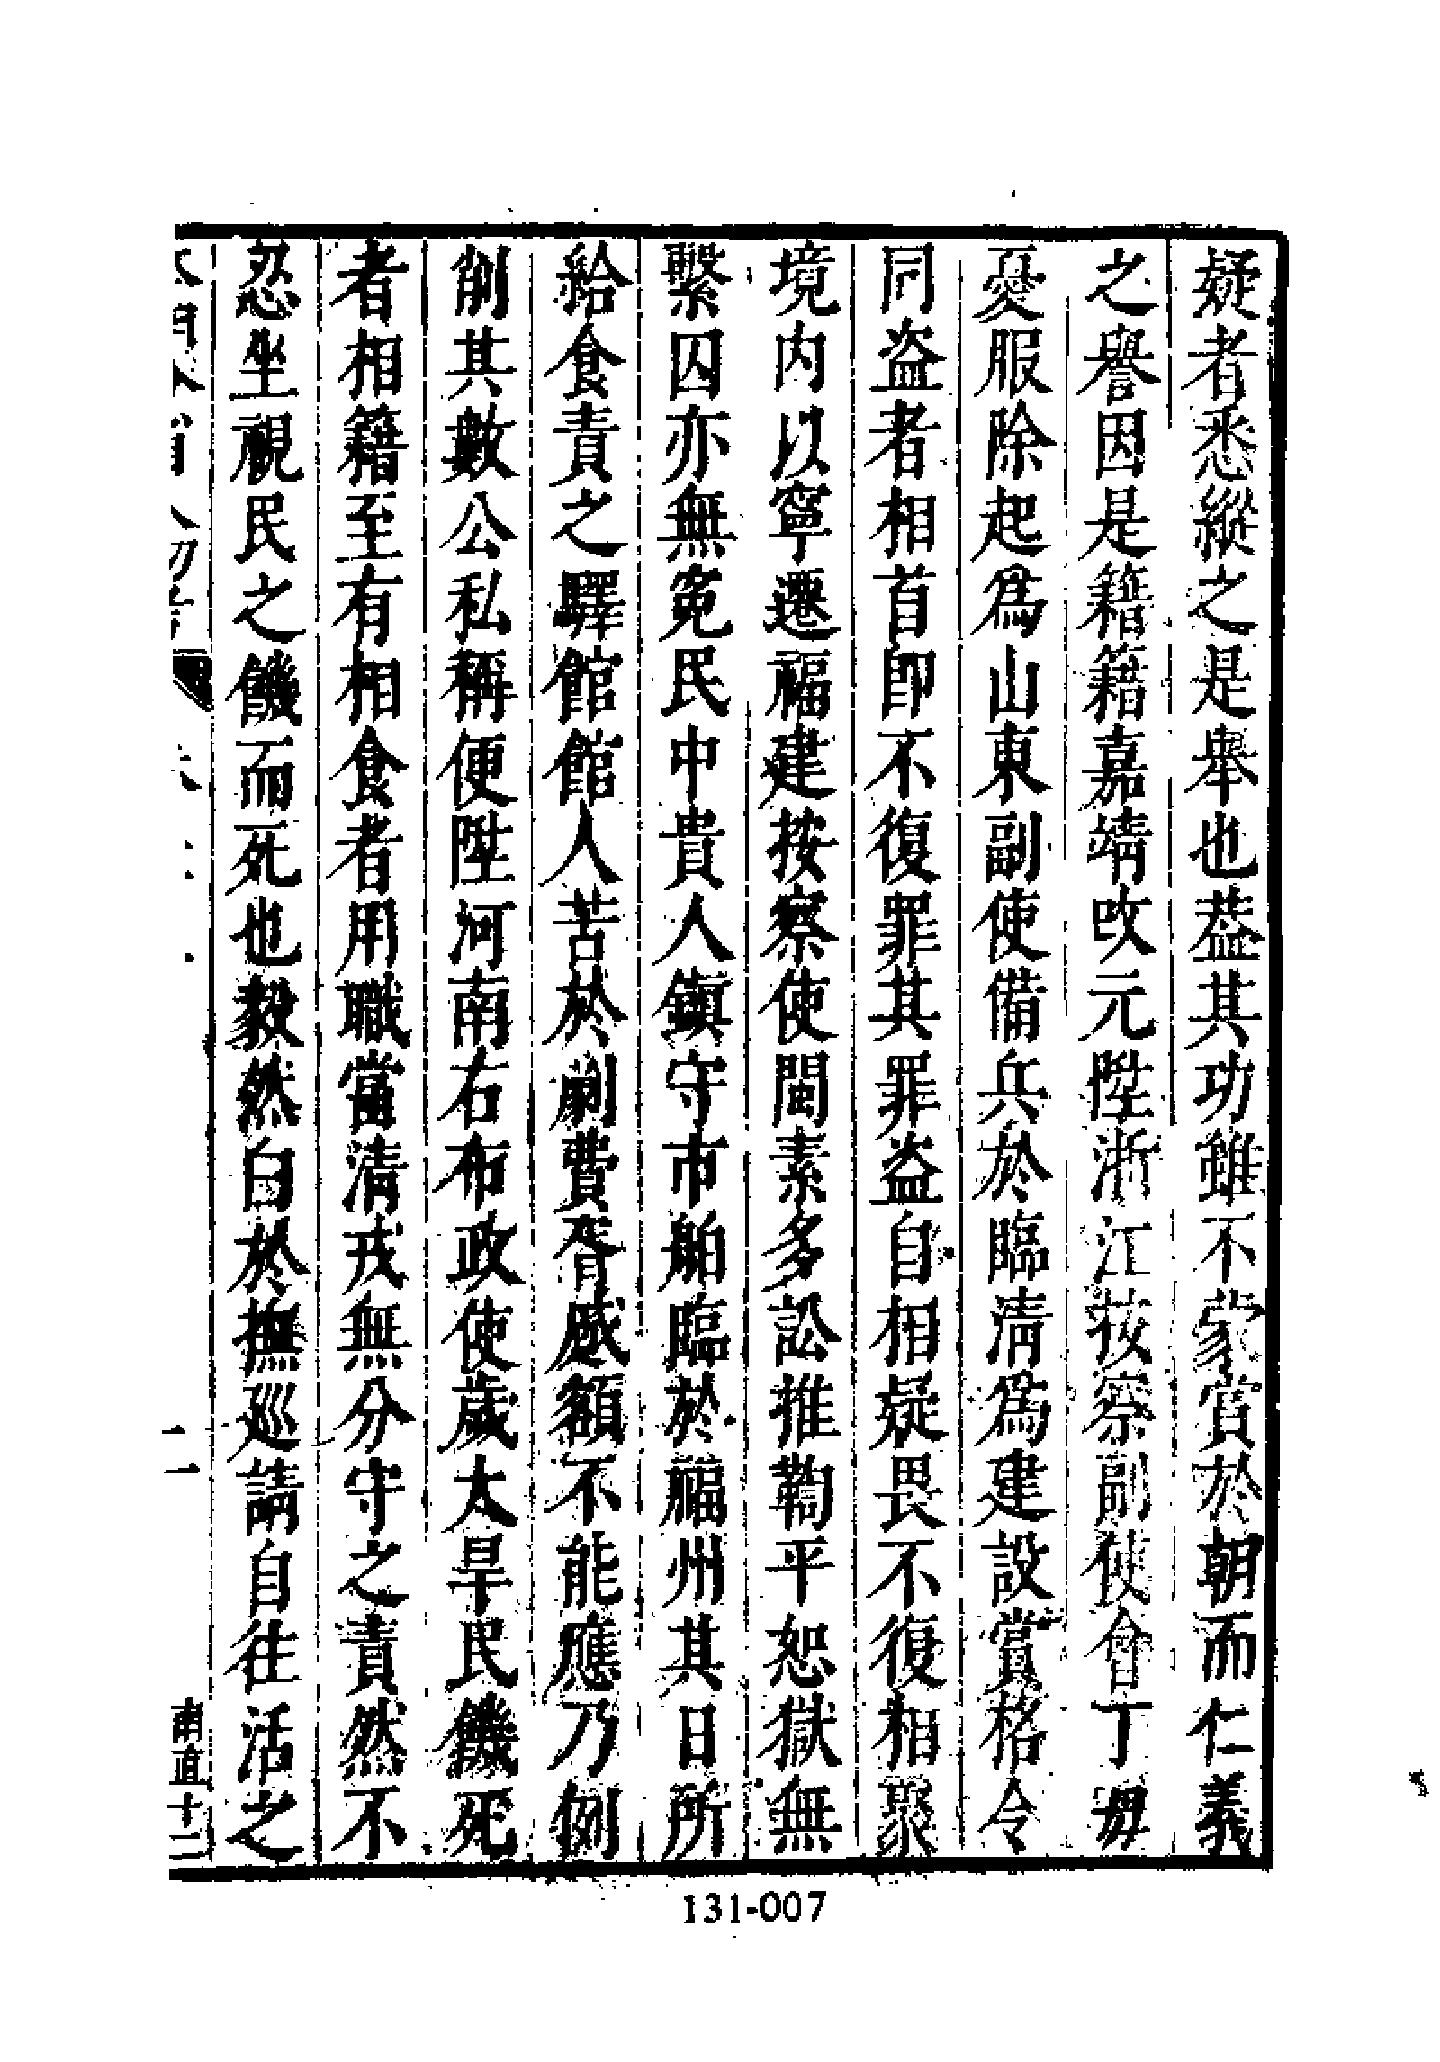 疑者悉縱之是舉也葢其功雖不蒙賞於朝而仁義
之譽因是籍籍嘉靖改元陞浙江按察副使會丁毋
憂服除起爲山東副使備兵於臨清爲建設賞格令
同盜者相首卽不復罪其罪盜自相疑畏不復相聚
境内以寧遷福建按察使閩素多訟推鞫平恕獄無
繫囚亦無寃民中貴人鎮守市舶臨於福州其日所
給食責之驛館館人苦於劇費胥慼額不能應乃例
削其數公私稱便陞河南右布政使歲大旱民饑死
者相籍至有相食者用職當清戎無分守之責然不
忍坐視民之饑而死也毅然白於撫巡請自往活之
南直十二
131-007